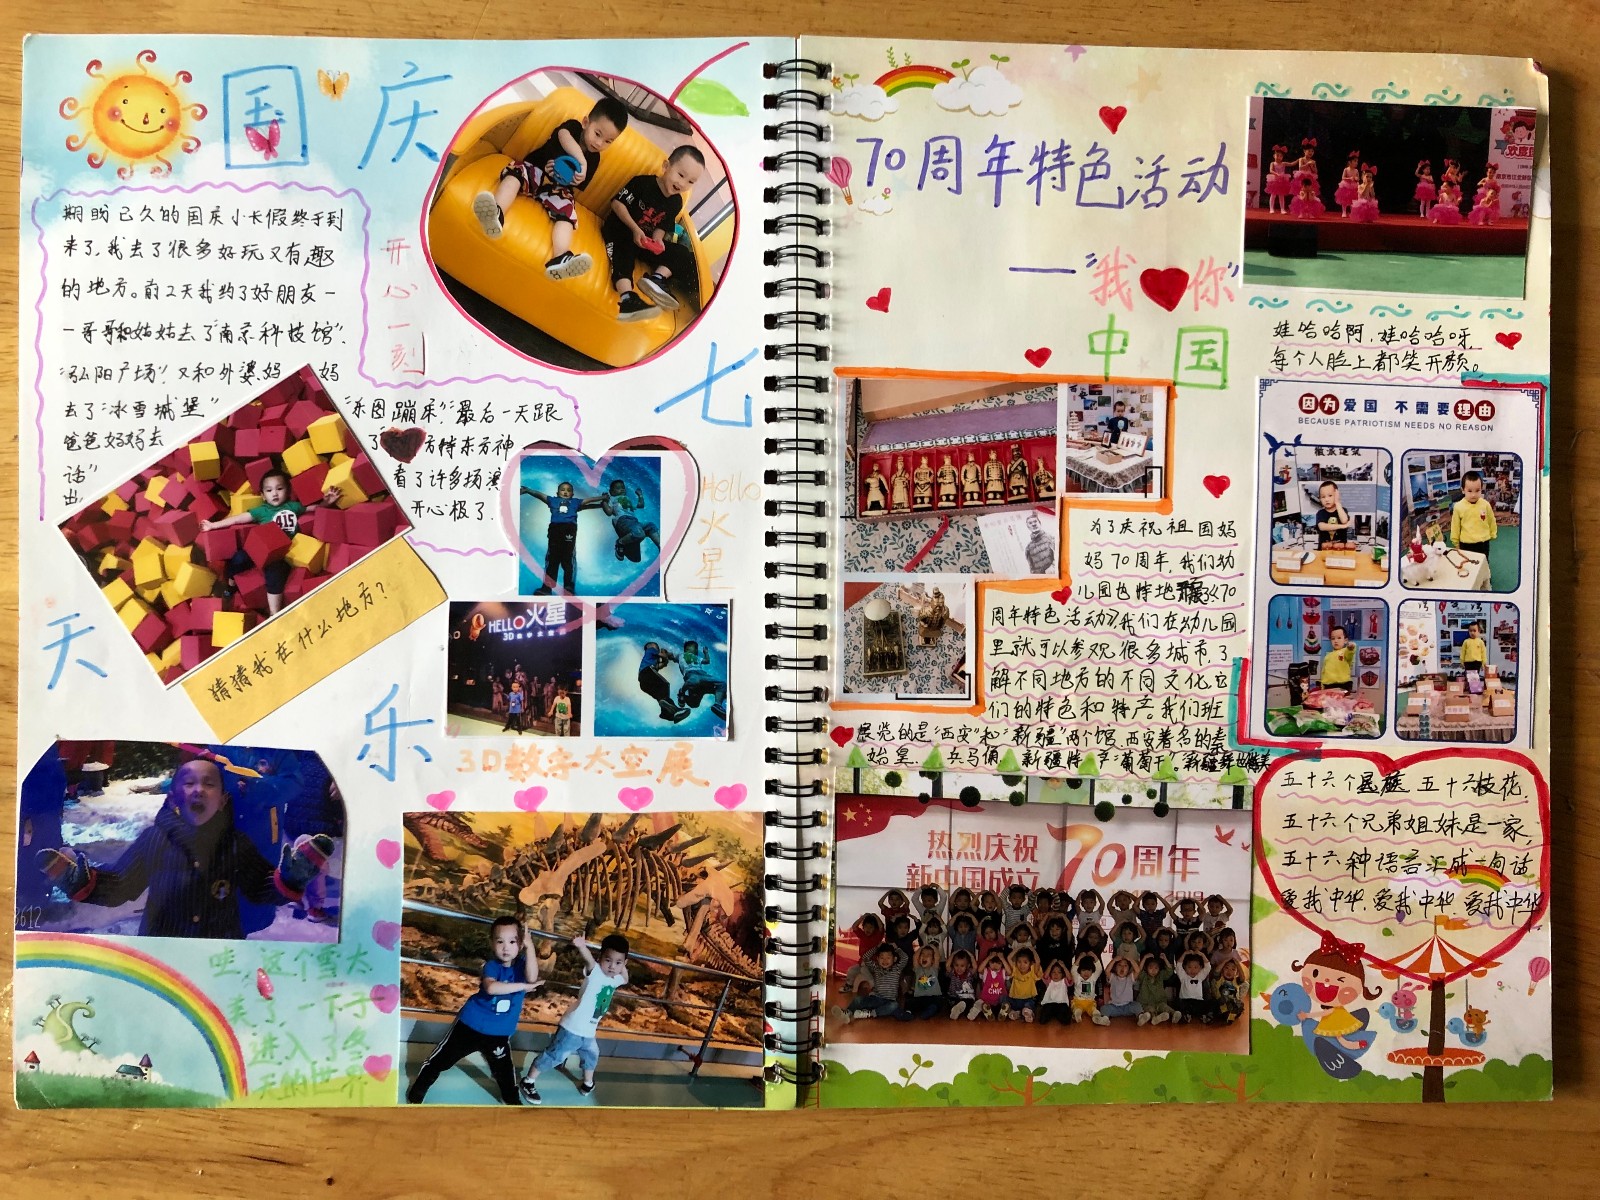 国庆
七天乐
期盼已久的国庆小长假终于到
来了,我去了很多好玩又有趣
的地方。前2天我约了好朋友一
一哥哥和姑姑去了“南京科技馆”.
“弘阳广场”.又和外婆.妈妈
去了“冰雪城堡”
“乐图蹦床”.最后一天跟
爸爸妈妈去了
方特东方神
话”
看了许多场演
出,
开心极了.
开心一刻
猜猜我在什么地方?
Hello
火星
HELLO火星
3D数字太空展
哇,这个雪太
美了,一下子
进入了冬
天的世界
70周年特色活动
——“我 你”
中国
娃哈哈啊,娃哈哈呀,
每个人脸上都笑开颜。
因为爱国 不需要理由
BECAUSE PATRIOTISM NEEDS NO REASON
为了庆祝祖国妈
妈70周年,我们幼
儿园也特地开展了《70
周年特色活动》,我们在幼儿园
里就可以参观很多城市,了
解不同地方的不同文化,它
们的特色和特产。我们班
展览的是“西安”和“新疆”两个馆,西安著名的秦
始皇.兵马俑,新疆特产“葡萄干”。新疆舞也
热烈庆祝
新中国成立70周年
五十六个民族,五十六枝花,
五十六个兄弟姐妹是一家,
五十六种语言汇成一句话
爱我中华,爱我中华,爱我中华